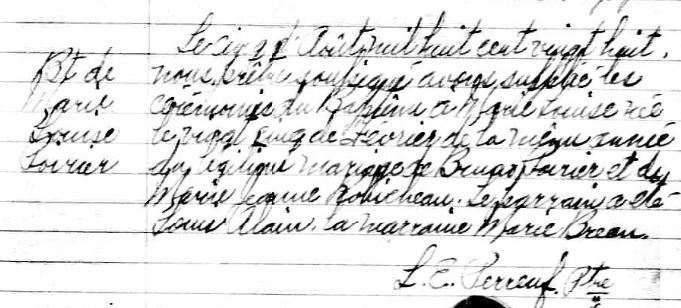 Le cinq d'Août mil huit cent vingt huit,
Bt de nous prêtre soussigné avons suppléé les
Marie cérémonies du Baptême à Marie Louise née
Louise le vingt cinq de Février de la même année
Poirier du légitime mariage de Bruno Poirier et de
Marie Jeanne Robicheau. Le parrain a été
Louis Alain. la marraine Marie Breau.
L. C. Ptre